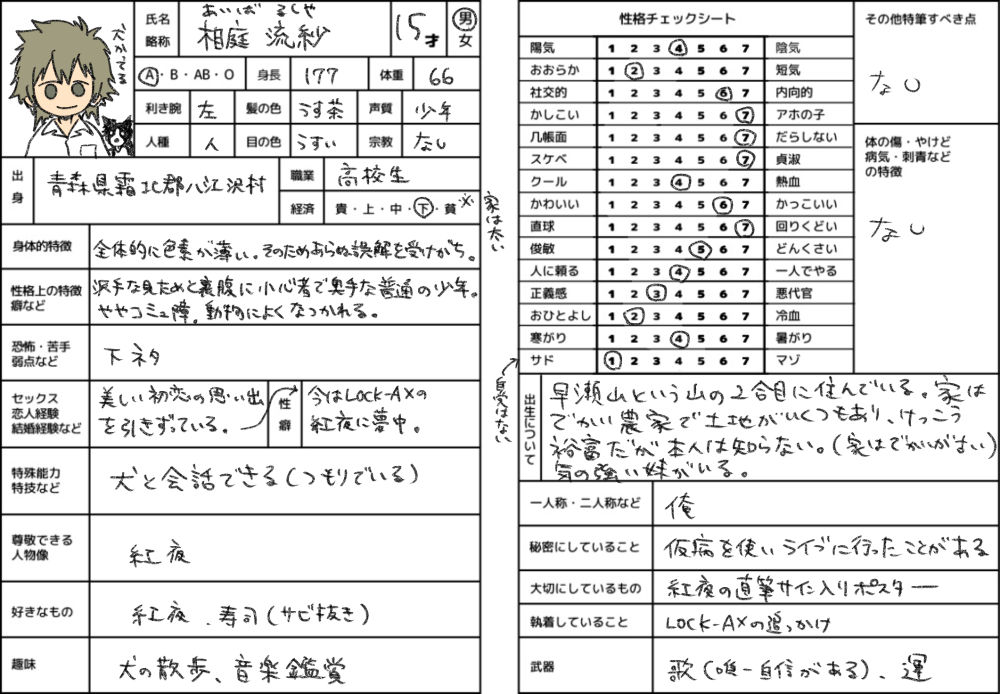 犬かってる
氏名
略称
あいば るしや
相庭 流紗
15才
男
女
A・B・AB・O
身長
177
体重
66
利き腕
左
髪の色
うす茶
声質
少年
人種
人
目の色
うすい
宗教
なし
出身
青森県霜北郡八江沢村
職業
高校生
経済
貴・上・中・下・貧
※家は太い
身体的特徴
全体的に色素が薄い。そのためあらぬ誤解を受けがち。
性格上の特徴
癖など
派手な見ためと裏腹に小心者で奥手な普通の少年。
ややコミュ障。動物によくなつかれる。
恐怖・苦手
弱点など
下ネタ
セックス
恋人経験
結婚経験など
美しい初恋の思い出
を引きずっている。
性癖
今はLOCK-AXの
紅夜に夢中。
特殊能力
特技など
犬と会話できる(つもりでいる)
尊敬できる
人物像
紅夜
好きなもの
紅夜、寿司(サビ抜き)
趣味
犬の散歩、音楽鑑賞
性格チェックシート
陽気 1 2 3 4 5 6 7 陰気
おおらか 1 2 3 4 5 6 7 短気
社交的 1 2 3 4 5 6 7 内向的
かしこい 1 2 3 4 5 6 7 アホの子
几帳面 1 2 3 4 5 6 7 だらしない
スケベ 1 2 3 4 5 6 7 貞淑
クール 1 2 3 4 5 6 7 熱血
かわいい 1 2 3 4 5 6 7 かっこいい
直球 1 2 3 4 5 6 7 回りくどい
俊敏 1 2 3 4 5 6 7 どんくさい
人に頼る 1 2 3 4 5 6 7 一人でやる
正義感 1 2 3 4 5 6 7 悪代官
おひとよし 1 2 3 4 5 6 7 冷血
寒がり 1 2 3 4 5 6 7 暑がり
サド 1 2 3 4 5 6 7 マゾ
自覚はない
その他特筆すべき点
なし
体の傷・やけど
病気・刺青など
の特徴
なし
出生について
早瀬山という山の2合目に住んでいる。家は
でかい農家で土地がいくつもあり、けっこう
裕富だが本人は知らない。(家はでかいが古い)
気の強い妹がいる。
一人称・二人称など
俺
秘密にしていること
仮病を使いライブに行ったことがある
大切にしているもの
紅夜の直筆サイン入りポスター
執着していること
LOCK-AXの追っかけ
武器
歌(唯一自信がある)、運